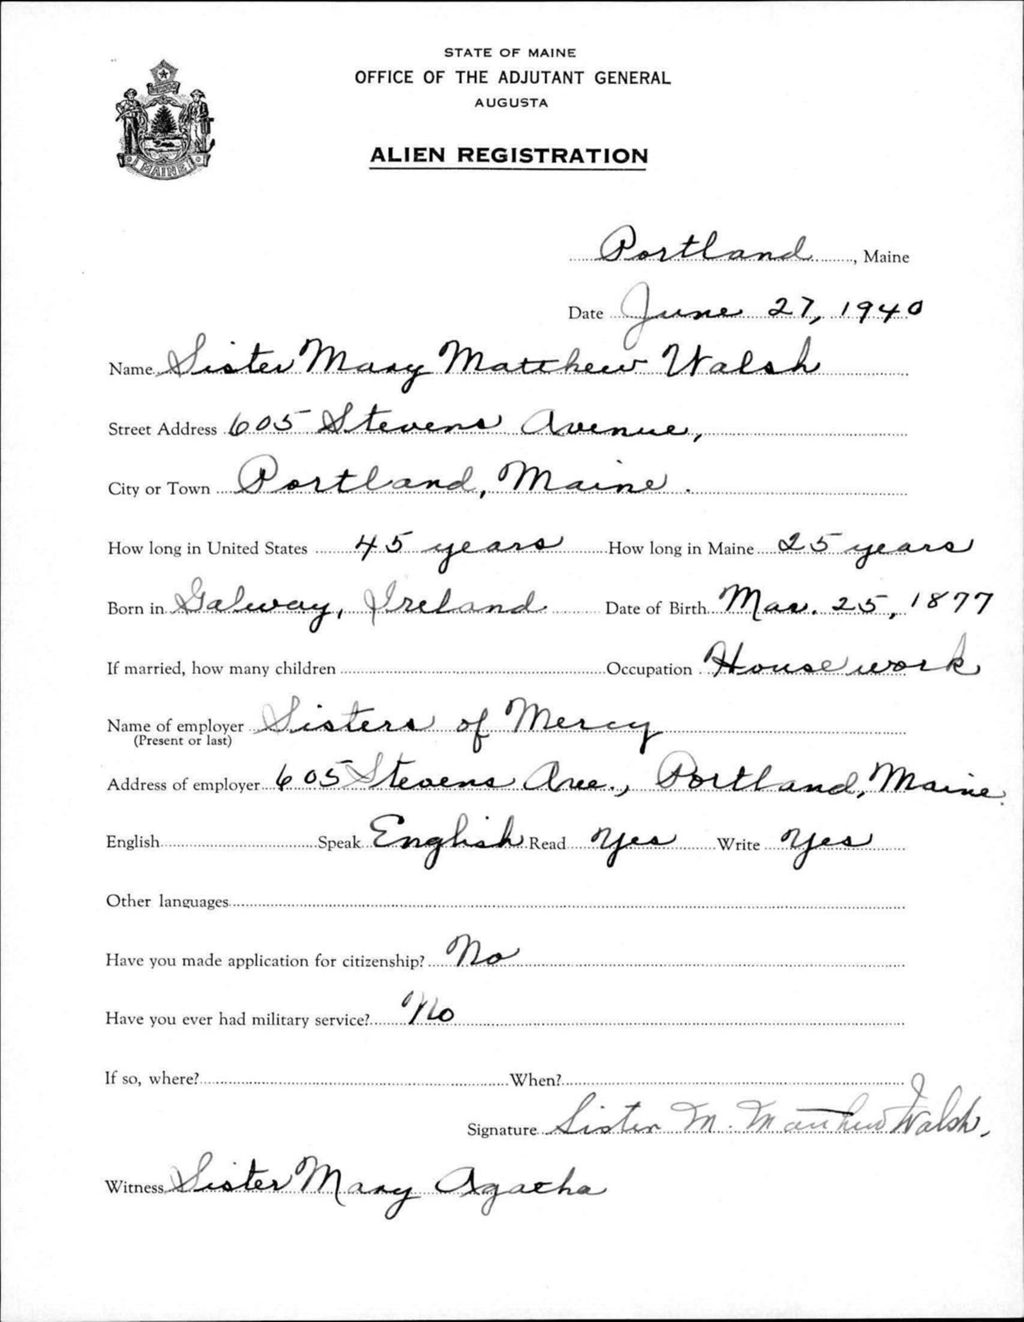 STATE OF MAINE
OFFICE OF THE ADJUTANT GENERAL
AUGUSTA
ALIEN REGISTRATION
MAINE
Portland, Maine
Date June 27, 1940
Name Sister Mary Matthew Walsh
Street Address 605 Stevens Avenue,
City or Town Portland, Maine.
How long in United States 45 years How long in Maine 25 years
Born in Galway, Ireland Date of Birth Mar. 25, 1877
If married, how many children Occupation Housework
Name of employer Sisters of Mercy
(Present or last)
Address of employer 605 Stevens Ave., Portland, Maine.
English Speak English Read Yes Write Yes
Other languages
Have you made application for citizenship? No
Have you ever had military service? No
If so, where? When?
Signature Sister M. Matthew Walsh.
Witness Sister Mary Agatha